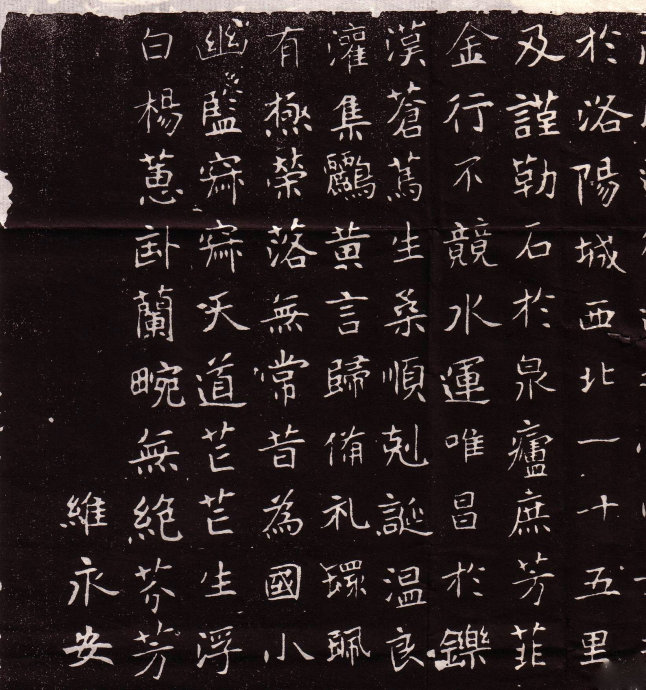 於洛陽城西北一十五里
及謹勒石於泉廬庶芳韮
金行不競水運唯昌於鑠
漠蒼蔿生桑順剋誕温良
灌集鸝黄言歸俻礼環珮
有極榮落無常昔為國小
幽監寐寐天道芒芒生浮
白楊蔥卦蘭畹無絶芬芳
維永安